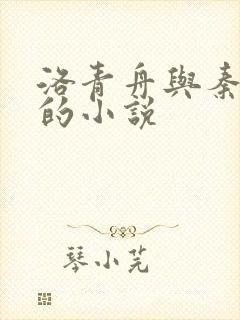 洛青舟與秦
的小説
琴小芫